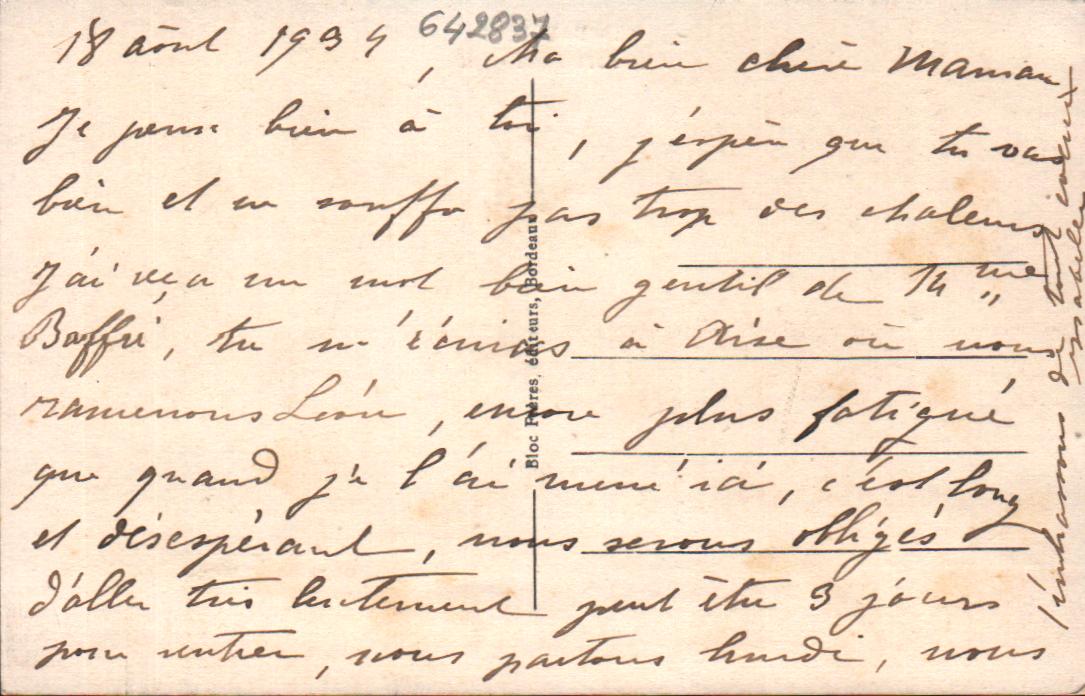 642837
18 août 1934, Ma bien chère Maman
Je pense bien à toi, j'éspère que tu vas
bien et ne souffre pas trop des chaleurs
J'ai reçu un mot bien gentil de Mme
Baffré, tu m'écriras à où nous
ramenons Léon, encore plus fatigué
que quand je l'ai mené ici, c'ést long
et désespérant, nous serons obligés
d'aller très lentement peut être 3 jours
pour rentrer, nous partons lundi, nous
t'embrassons de tout coeur
Bloc Frères, éditeurs, Bordeaux